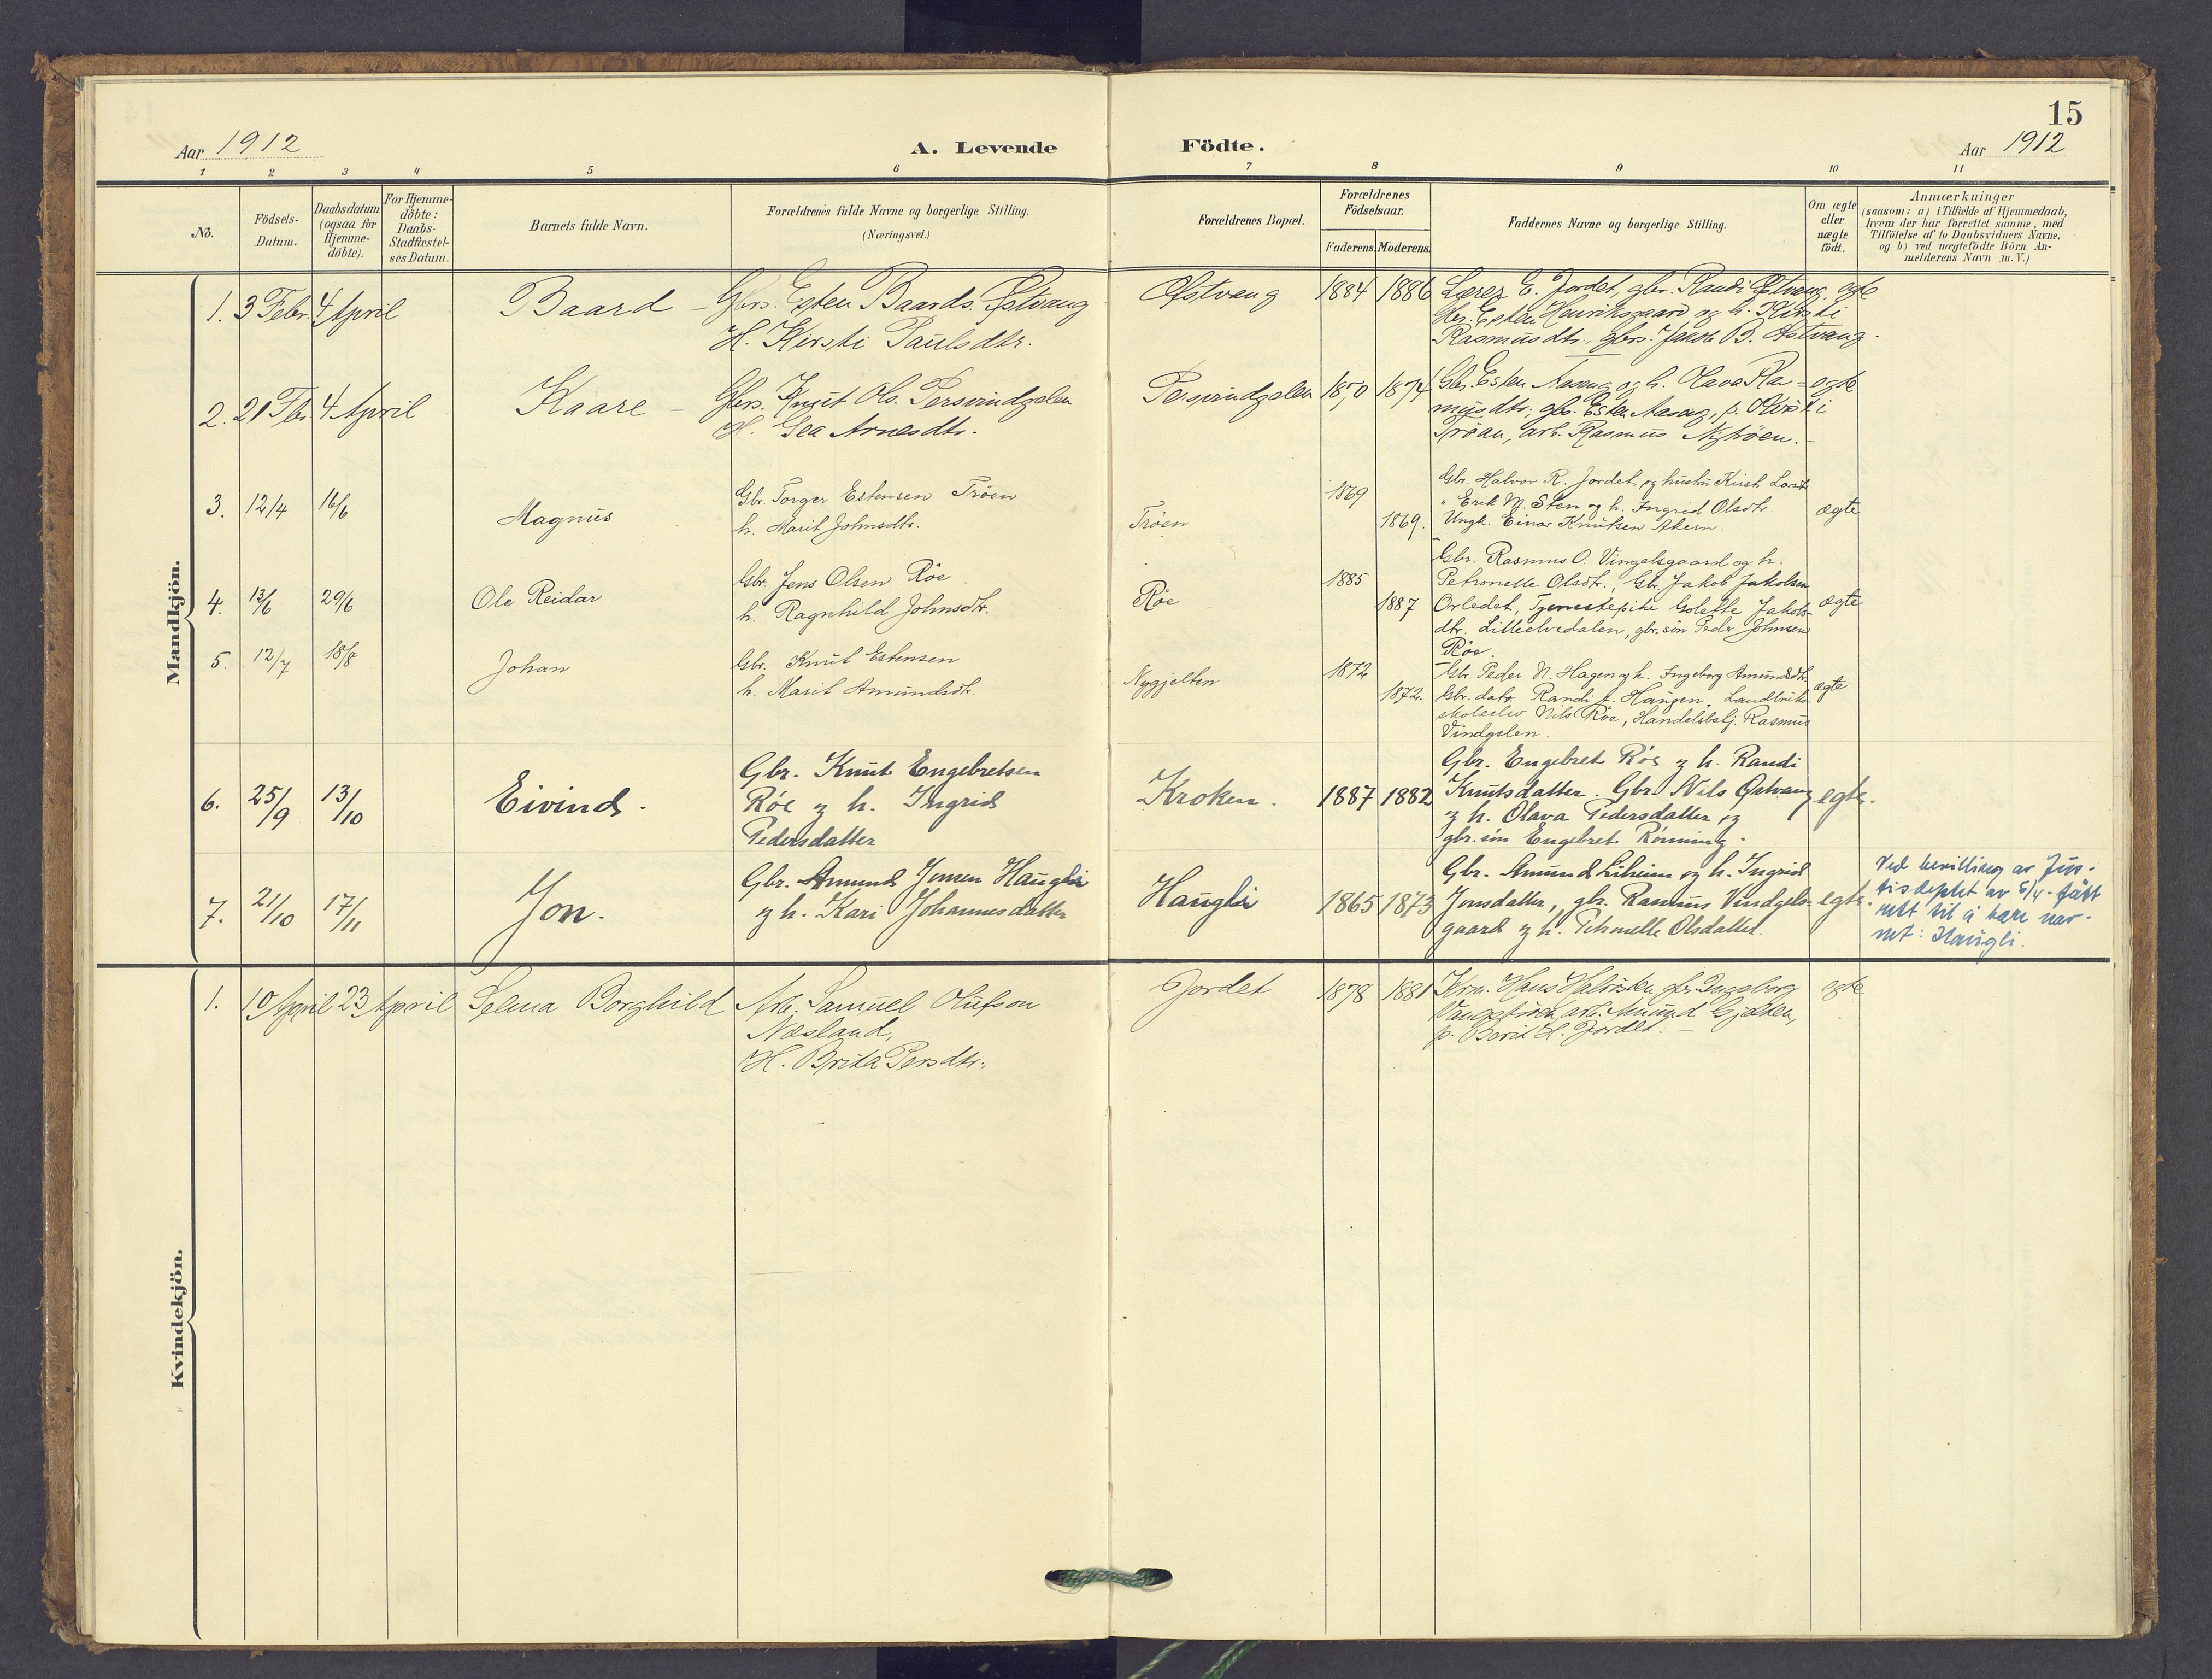 15
Aar 1912
A. Levende
Födte.
Aar 1912
1 2 3 4 5 6 7 8 9 10 11
No.
Födsels-
Datum.
Daabsdatum
(ogsaa for
Hjemme-
döbte).
For Hjemme-
döbte:
Daabs-
Stadfæstel-
ses Datum.
Barnets fulde Navn.
Forældrenes fulde Navne og borgerlige Stilling.
(Næringsvei.)
Forældrenes Bopæl.
Forældrenes
Födselsaar.
Faderens. Moderens.
Faddernes Navne og borgerlige Stilling.
Om ægte
eller
uægte
født.
Anmærkninger
(saasom: a) i Tilfælde af Hjemmedaab,
hvem der har forrettet samme, med
Tilföielse af to Daabsvidners Navne,
og b) ved uægtefödte Börn An-
melderens Navn m. V.)
Mandkjön.
1. 3 Febr. 4 April
Baard
Gbr. Esten Baards. Østvang
H. Kirsti Paulsdtr.
Østvang
1884 1886
E. Jordet, gbr. Randi Østvang,
Gbr. Esten Henriksgaard og h. Kirsti
Rasmusdtr., gbrs. Jakob B. Østvang.
ægte
2. 21 Fbr. 4 April
Kaare
Gbr. Knut Ols. Persvindgelen
H. Gea Arnesdtr.
Persvindgelen
1870 1874
Gbr. Esten Aasang og h. Olava Ras-
musdtr., gbs. Esten Aasang, p. Kirsti
Trøan, arb. Rasmus Nytrøen.
ægte
3. 12/4 16/6
Magnus
Gbr. Torger Estensen Trøen
h. Marit Johnsdtr.
Trøen
1869
1869.
Gbr. Halvor R. Jordet og hustru Kirsti
" Erik M. Sten og h. Ingrid Olsdtr.
Ungk. Einar Knutsen
ægte
4. 13/6 29/6
Ole Reidar
Gbr. Jens Olsen Röe
h. Ragnhild Johnsdtr.
Röe
1885
1887
Gbr. Rasmus O. Vingelsgaard og h.
Petronelle Olsdtr., Gbr. Jakob Jakobsen
Orledet, Tjenestepike Golette Jakobs-
dtr. Lilleelvedalen, gbr.sön Peder Johnsen
Röe.
ægte
5. 12/7 18/8
Johan
Gbr. Knut Estensen
h. Marit Amundsdtr.
Nygjelten
1872
1872.
Gbr. Peder N. Hagen og h. Ingeborg Amundsdtr.
Gbr. datr. Randi Haugen, Landbruks-
skoleelev Nils Röe, Handelsbetj. Rasmus
Vindgelen.
ægte
6. 25/9 13/10
Eivind.
Gbr. Knut Engebretsen
Röe og h. Ingrid
Pedersdatter
Kroken.
1887 1882
Gbr. Engebret Röe og h. Randi
Knutsdatter. Gbr. Nils Østvang
og h. Olava Pedersdatter og
gbr. sön Engebret Rönning.
egte.
7. 21/10 17/11
Jon.
Gbr. Amund Jonsen Haugli
og h. Kari Johannesdatter
Haugli
1865 1873
Gbr. Amund Liheim og h. Ingrid
Jonsdatter, gbr. Rasmus Vindgels-
gaard og h. Petrnelle Olsdatter.
egte.
Ved bevilling av Jus-
tisdeptet av 5/4 - fått
rett til å bære nav-
net: Haugli.
Kvindekjön.
1. 10 April 23 April
Selma Borghild
Arb. Samuel Olafson
Næsland,
H. Brita Persdtr.
Jordet
1878 1881
Hans Halvorsen, gbr. Ingeborg
arb. Amund Gjelten,
p. Berit H. Jordet.
egte